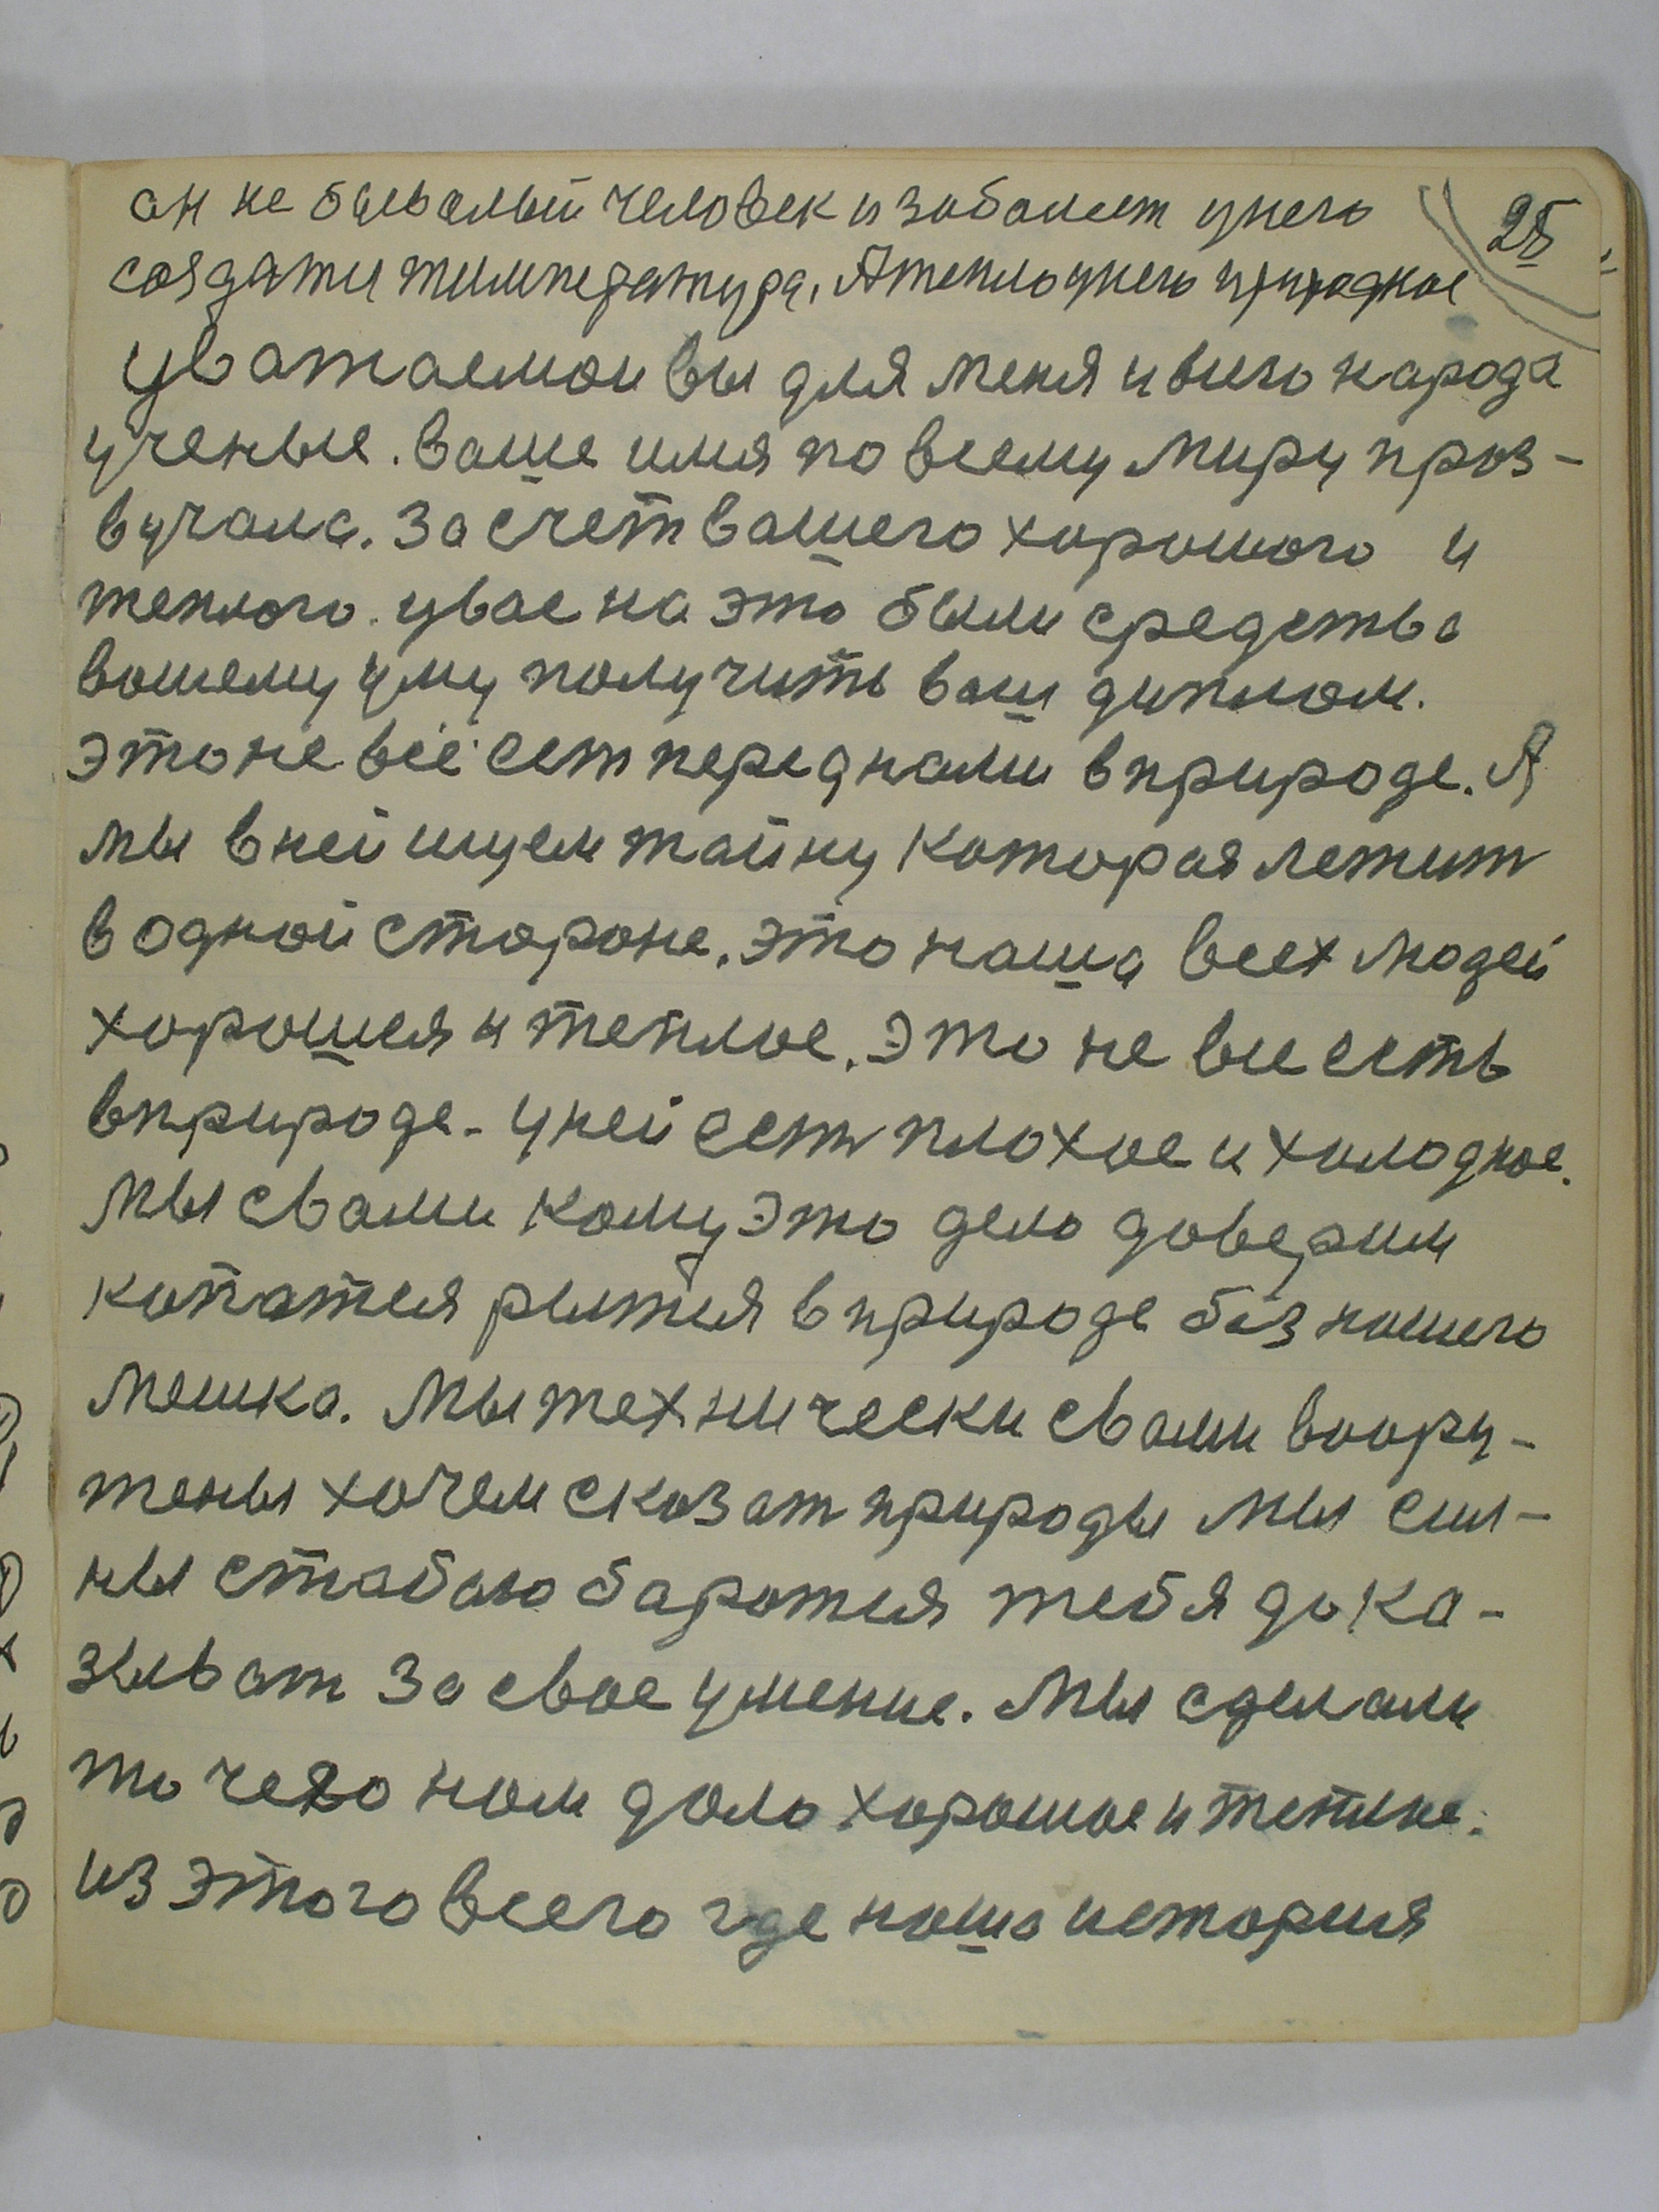 25
он не бывалый человек и заболеет у него
создати температура, А тепло у него природное
уважаемои вы для меня и всего народа
ученые. ваше имя по всему миру проз-
вучала. За счет вашего хорошого и
теплого. у вас на это были средства
вашему уму получить ваш диплом.
это не всё ест перед нами в природе. А
мы в ней ищем тайну которая лежит
в одной стороне. это наша всех людей
хорошея и теплое. Это не все есть
в природе. у ней ест плохое и холодное.
Мы с вами кому это дело доверим
копатся рытся в природе без нашего
мешка. Мы технически с вами воору-
жены хочем сказат природы мы сил-
ны стабою баротся тебя дока-
зыват за свое умение. Мы сделали
то чего ном дало хорошое и теплое.
из этого всего где наша история